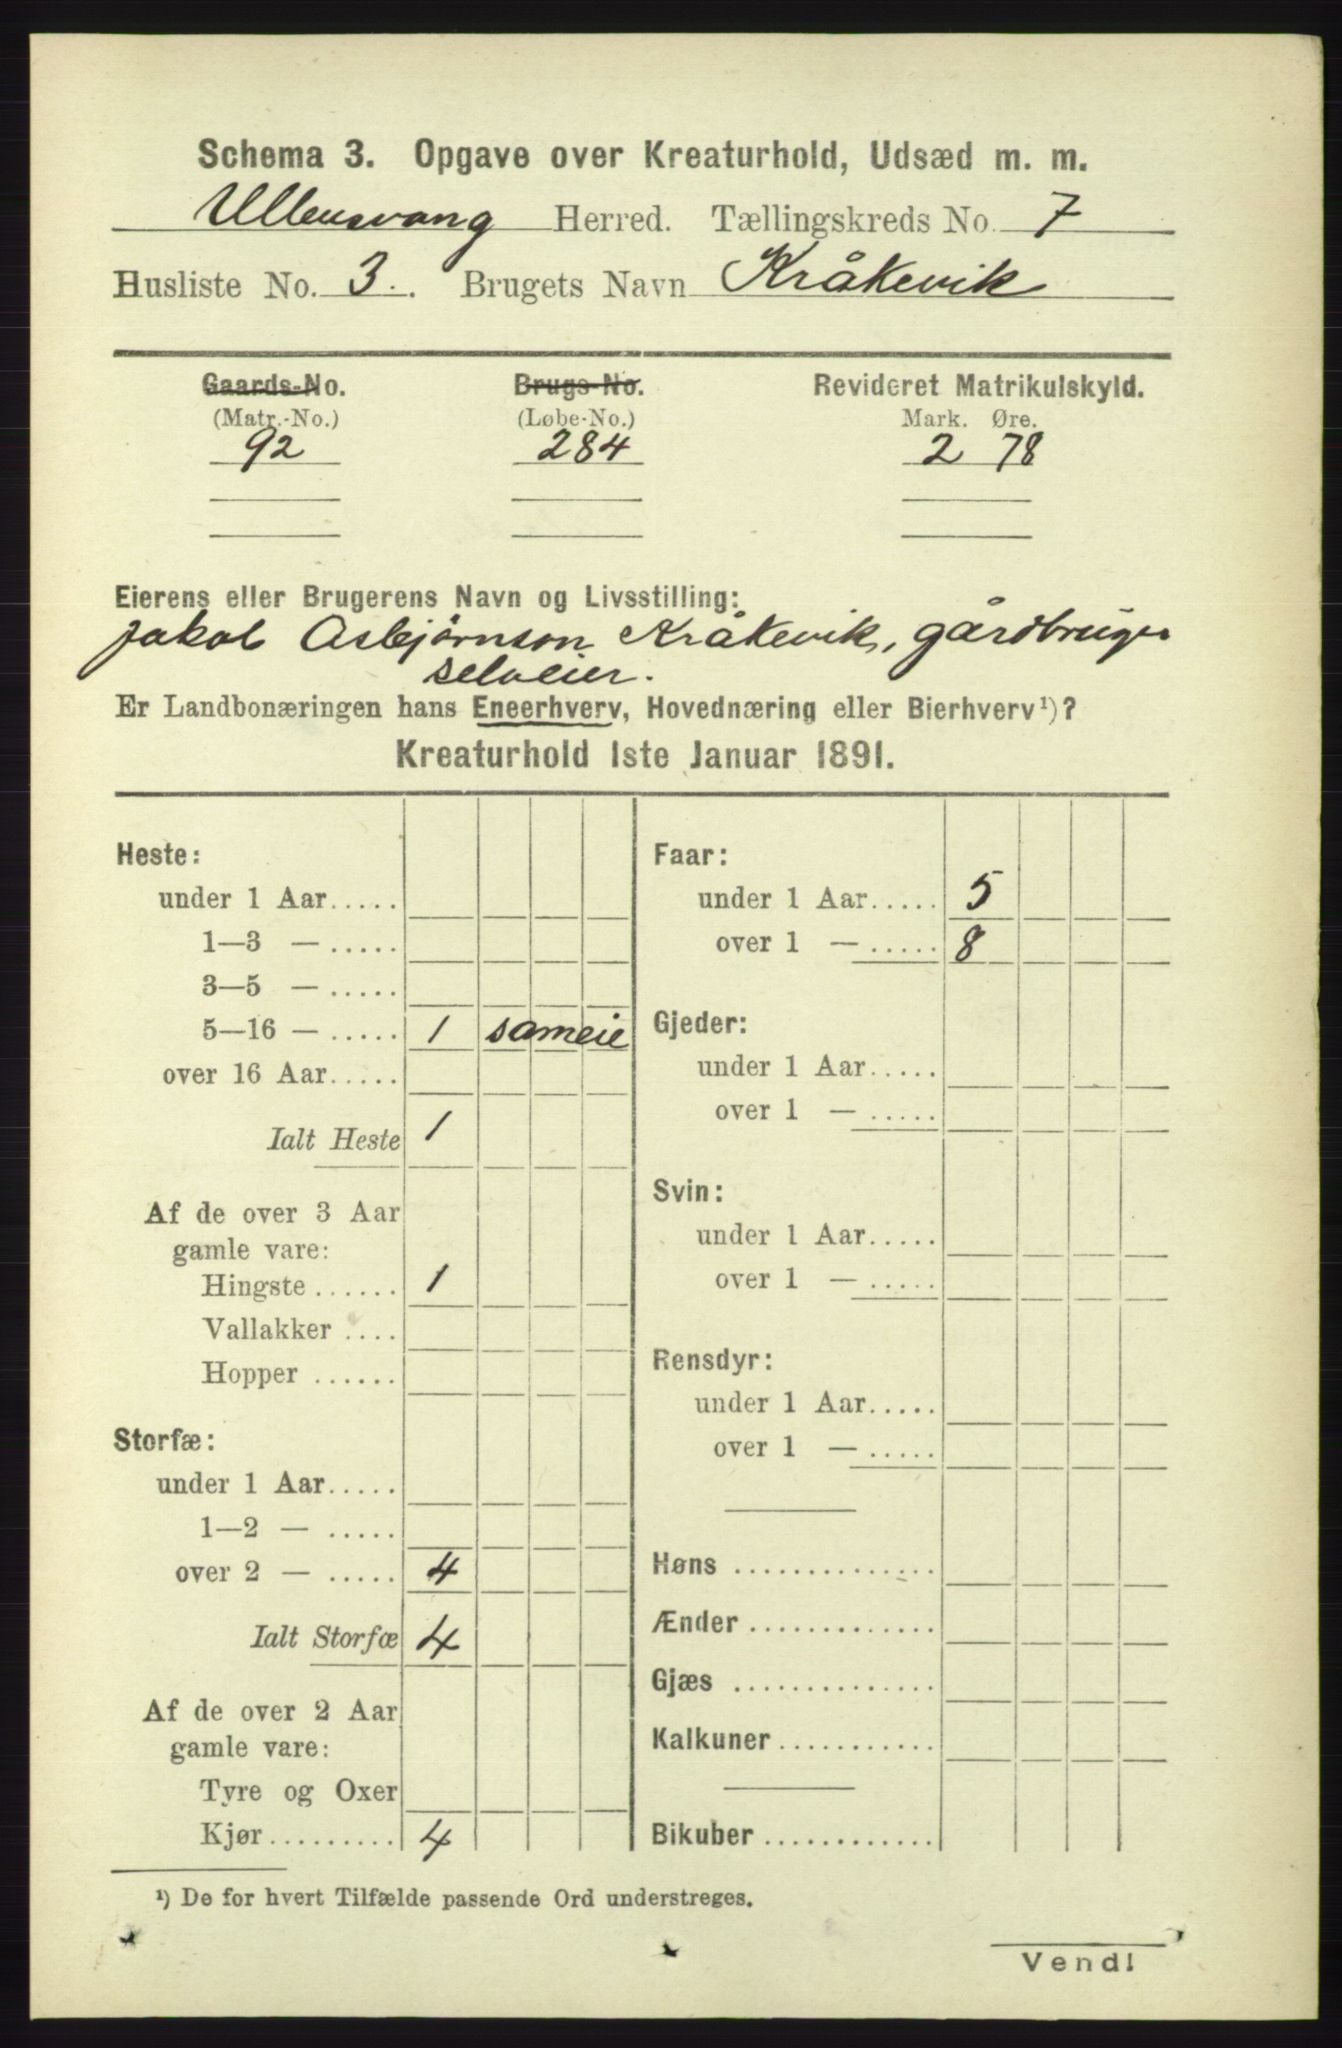 Schema 3. Opgave over Kreaturhold, Udsæd m. m.
Ullensvang Herred. Tællingskreds No. 7
Husliste No. 3. Brugets Navn Kråkevik
Gaards-No. Brugs-No. Revideret Matrikulskyld.
(Matr.-No.) (Løbe-No.) Mark. Øre.
92 284 2 78
Eierens eller Brugerens Navn og Livsstilling:
Jakob Asbjørnson Kråkevik, gårdbruger
selveier.
Er Landbonæringen hans Eneerhverv, Hovednæring eller Bierhverv¹)?
Kreaturhold 1ste Januar 1891.
Heste:
under 1 Aar.....
1—3 — .....
3—5 — .....
5—16 — ..... 1 sameie
over 16 Aar.....
Ialt Heste 1
Af de over 3 Aar
gamle vare:
Hingste ...... 1
Vallakker ....
Hopper ......
Storfæ:
under 1 Aar.....
1—2 — .....
over 2 — ..... 4
Ialt Storfæ 4
Af de over 2 Aar
gamle vare:
Tyre og Oxer
Kjør......... 4
Faar:
under 1 Aar..... 5
over 1 — ..... 8
Gjeder:
under 1 Aar.....
over 1 — .....
Svin:
under 1 Aar.....
over 1 — .....
Rensdyr:
under 1 Aar.....
over 1 — .....
Høns ..............
Ænder .............
Gjæs ..............
Kalkuner...........
Bikuber ............
¹) De for hvert Tilfælde passende Ord understreges.
Vend!